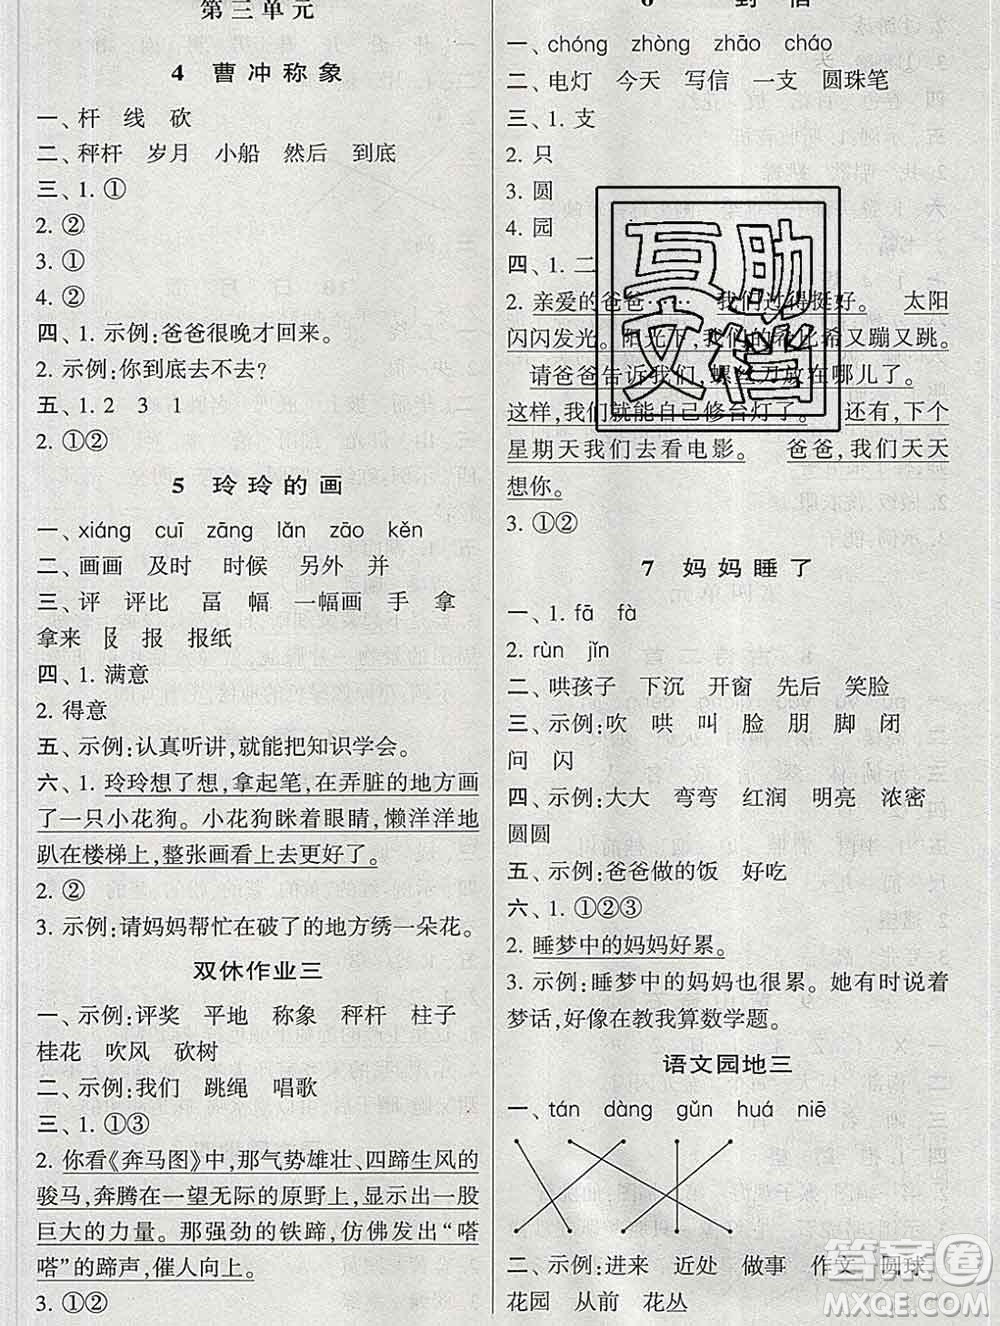 第三单元
4 曹冲称象
一、杆 线 砍
二、秤杆 岁月 小船 然后 到底
三、1. ①
2. ②
3. ①
4. ②
四、1. 示例:爸爸很晚才回来。
2. 示例:你到底去不去?
五、1. 2 3 1
2. ①②
5 玲玲的画
一、xiáng cuī zāng lǎn zāo kěn
二、画画 及时 时候 另外 并
三、评 评比 畐 幅 一幅画 手 拿
拿来 𠬝 报 报纸
四、1. 满意
2. 得意
五、示例:认真听讲,就能把知识学会。
六、1. 玲玲想了想,拿起笔,在弄脏的地方画
了一只小花狗。小花狗眯着眼睛,懒洋洋地
趴在楼梯上,整张画看上去更好了。
2. ②
3. 示例:请妈妈帮忙在破了的地方绣一朵花。
双休作业三
一、示例:评奖 平地 称象 秤杆 柱子
桂花 吹风 砍树
二、示例:我们 跳绳 唱歌
三、1. ①③
2. 你看《奔马图》中,那气势雄壮、四蹄生风的
骏马,奔腾在一望无际的原野上,显示出一股
巨大的力量。那强劲的铁蹄,仿佛发出“嗒
嗒”的蹄声,催人向上。
3. ①②
6 封信
一、chóng zhòng zhāo cháo
二、电灯 今天 写信 一支 圆珠笔
三、1. 支
2. 只
3. 圆
4. 园
四、1. 二
2. 亲爱的爸爸…… 我们过得挺好。 太阳
闪闪发光。阳光下,我们的希比希又蹦又跳。
请爸爸告诉我们,螺丝刀放在哪儿了。
这样,我们就能自己修台灯了。 还有,下个
星期天我们去看电影。 爸爸,我们天天
想你。
3. ①②
7 妈妈睡了
一、1. fā fà
2. rùn jǐn
二、哄孩子 下沉 开窗 先后 笑脸
三、示例:吹 哄 叫 脸 朋 脚 闭
问 闪
四、示例:大大 弯弯 红润 明亮 浓密
圆圆
五、示例:爸爸做的饭 好吃
六、1. ①②③
2. 睡梦中的妈妈好累。
3. 示例:睡梦中的妈妈也很累。她有时说着
梦话,好像在教我算数学题。
语文园地三
一、tán dàng gǔn huá niē
二、示例:进来 近处 做事 作文 圆球
花园 从前 花丛
互助
文档
答案圈
MXQE.COM